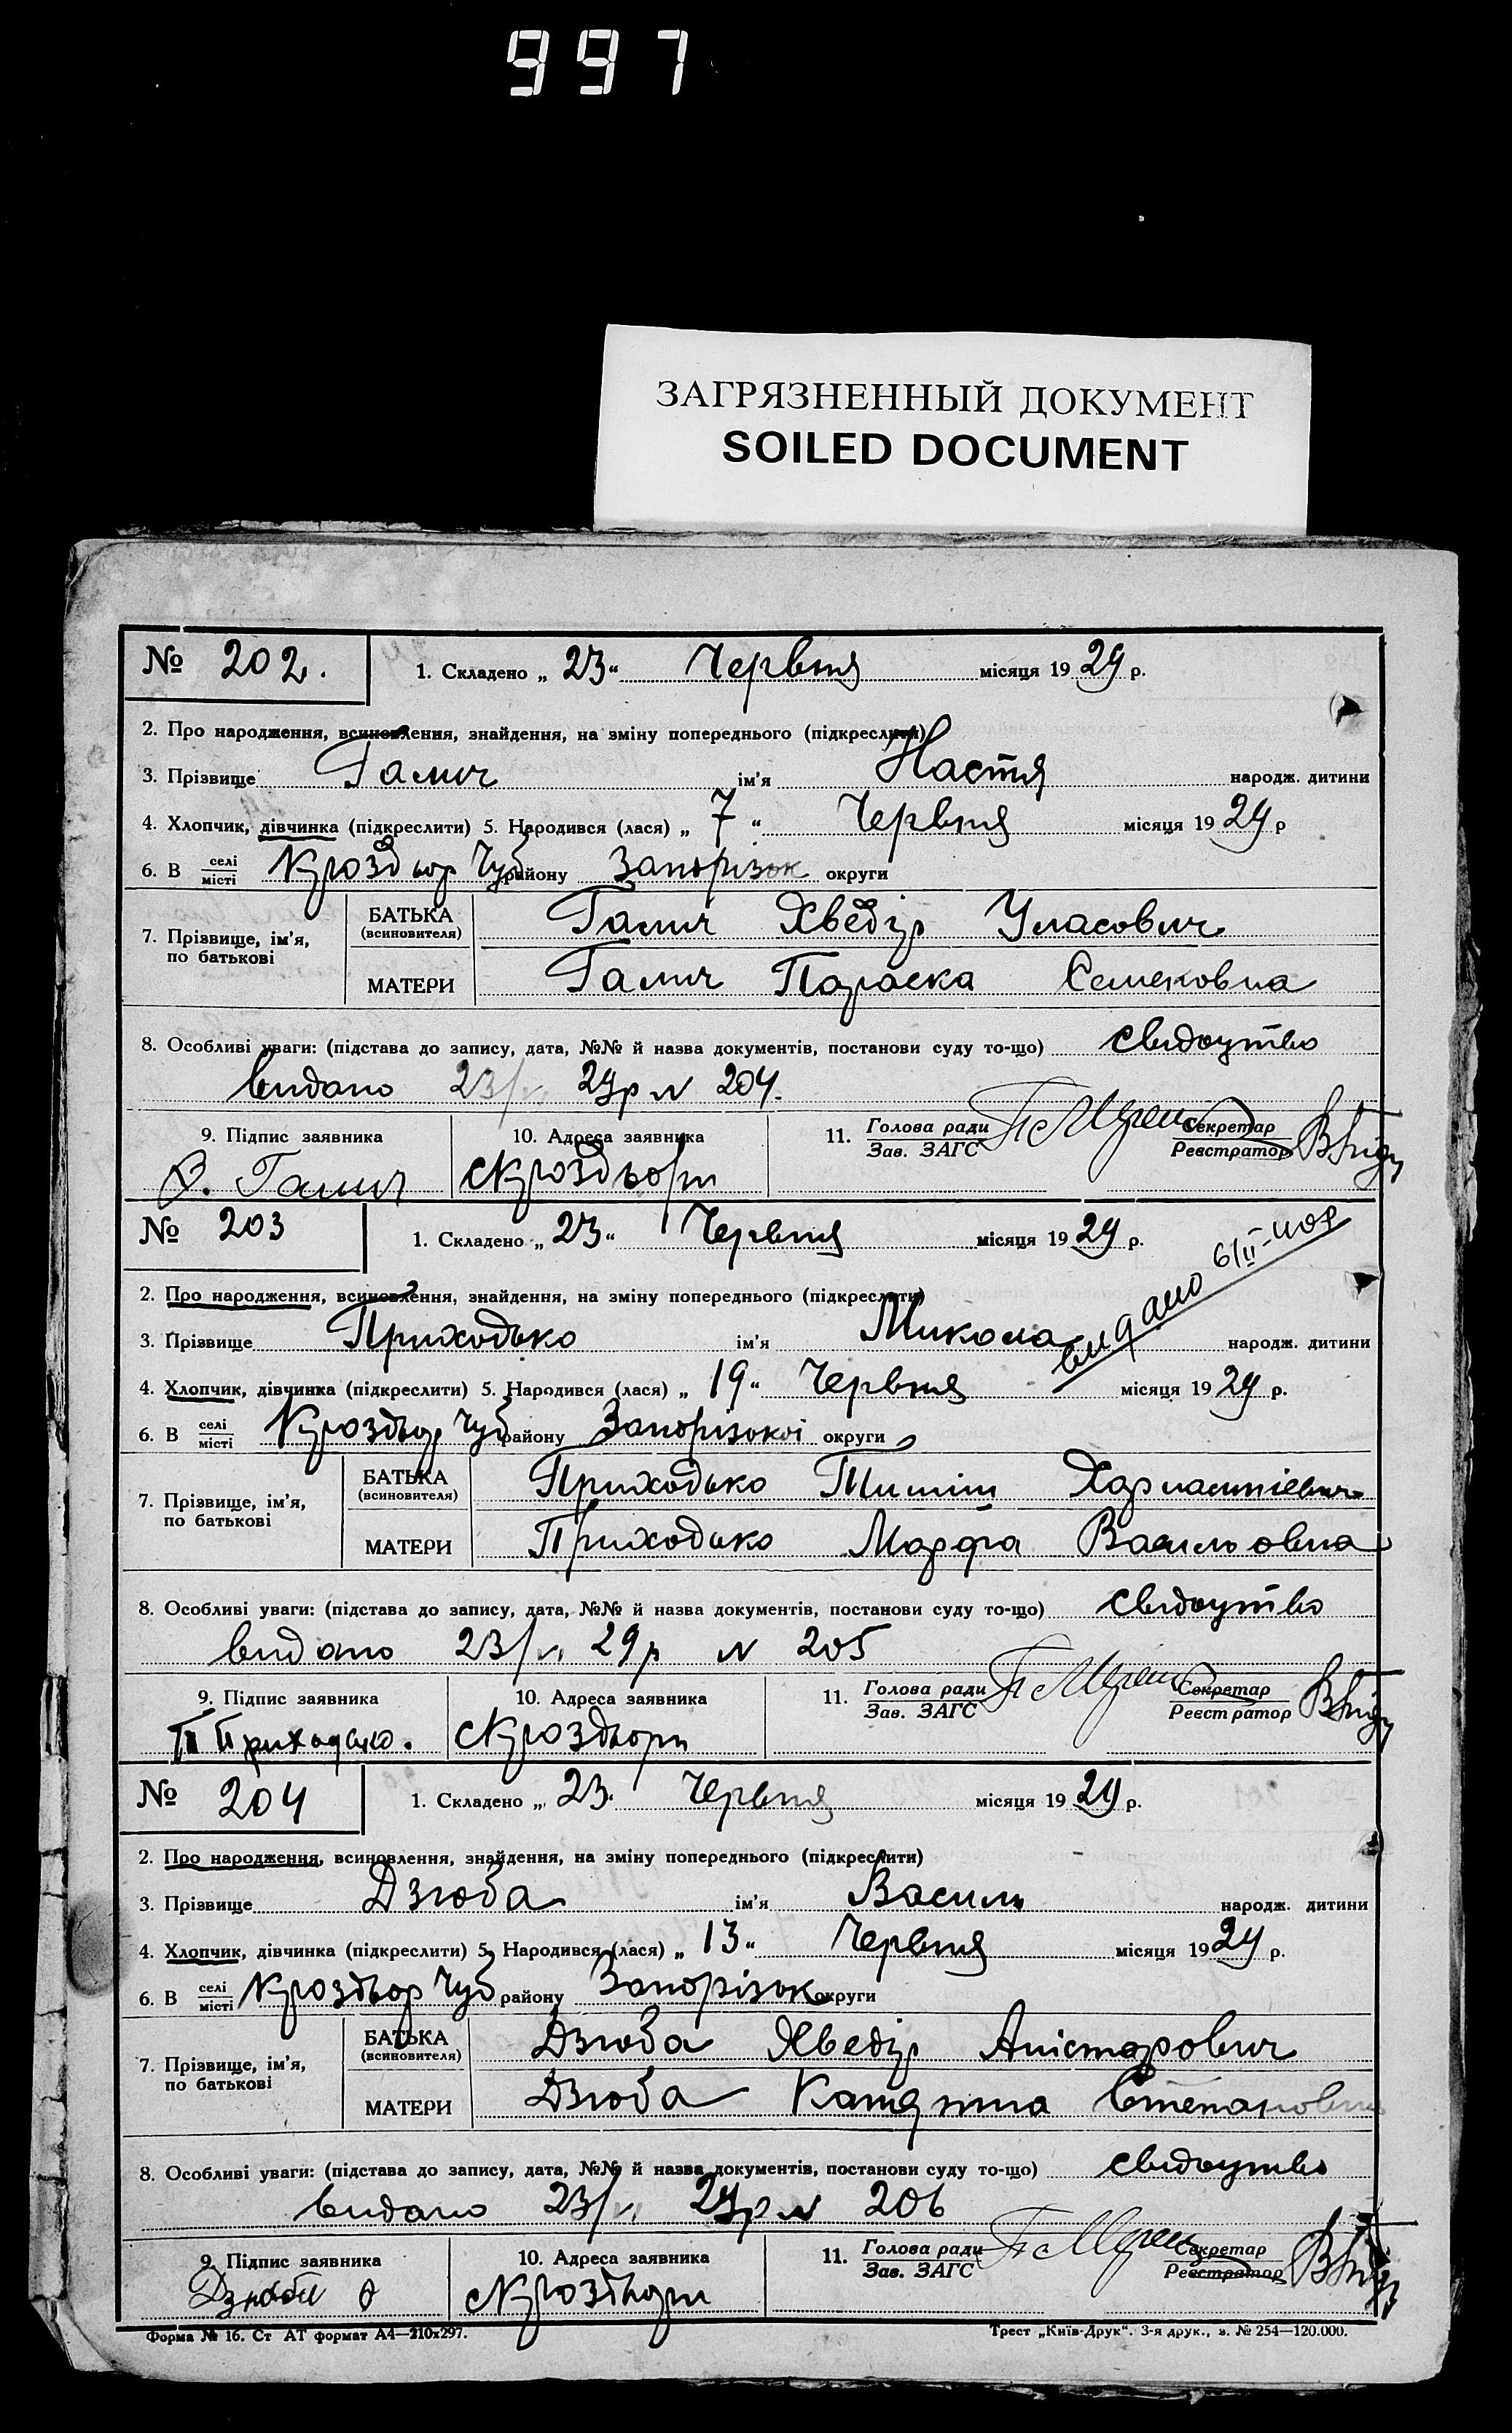 997
ЗАГРЯЗНЕННЫЙ ДОКУМЕНТ
SOILED DOCUMENT
№ 202. 1. Складено „ 23 “ Червня місяця 19 29 р.
2. Про народження, всиновлення, знайдення, на зміну попереднього (підкреслити)
3. Прізвище Галич ім'я Настя народж. дитини
4. Хлопчик, дівчинка (підкреслити) 5. Народився (лася) „ 7 “ Червня місяця 19 29 р
6. В селі місті Кроздвор Чуб району Запорізьк округи
7. Прізвище, ім'я, по батькові БАТЬКА (всиновителя) Галич Хведір Уласович
МАТЕРИ Галич Параска Семеновна
8. Особливі уваги: (підстава до запису, дата, №№ й назва документів, постанови суду то-що) свидоцтво
видано 23/VI 29р N 204.
9. Підпис заявника 10. Адреса заявника 11. Голова ради Зав. ЗАГС Секретар Реєстратор
Галич
№ 203 1. Складено „ 23 “ Червня місяця 19 29 р.
видано 6/II-40р
2. Про народження, всиновлення, знайдення, на зміну попереднього (підкреслити)
3. Прізвище Приходько ім'я Микола народж. дитини
4. Хлопчик, дівчинка (підкреслити) 5. Народився (лася) „ 19 “ Червня місяця 19 29 р.
6. В селі місті Кроздвор Чуб району Запорізької округи
7. Прізвище, ім'я, по батькові БАТЬКА (всиновителя) Приходько Тиміш Харлампієвич
МАТЕРИ Приходько Марфа Васильовна
8. Особливі уваги: (підстава до запису, дата, №№ й назва документів, постанови суду то-що) свидоцтво
видано 23/VI 29р N 205
9. Підпис заявника 10. Адреса заявника 11. Голова ради Зав. ЗАГС Секретар Реєстратор
Т Приходько.
№ 204 1. Складено „ 23 “ Червня місяця 19 29 р.
2. Про народження, всиновлення, знайдення, на зміну попереднього (підкреслити)
3. Прізвище Дзюба ім'я Василь народж. дитини
4. Хлопчик, дівчинка (підкреслити) 5. Народився (лася) „ 13 “ Червня місяця 19 29 р.
6. В селі місті Кроздвор Чуб району Запорізьк округи
7. Прізвище, ім'я, по батькові БАТЬКА (всиновителя) Дзюба Хведір
МАТЕРИ Дзюба Степановна
8. Особливі уваги: (підстава до запису, дата, №№ й назва документів, постанови суду то-що) свидоцтво
видано 23/VI 29р N 206
9. Підпис заявника 10. Адреса заявника 11. Голова ради Зав. ЗАГС Секретар Реєстратор
Форма № 16. Ст АТ формат А4—210x297. Трест „Київ-Друк“. 3-я друк., з. № 254—120.000.